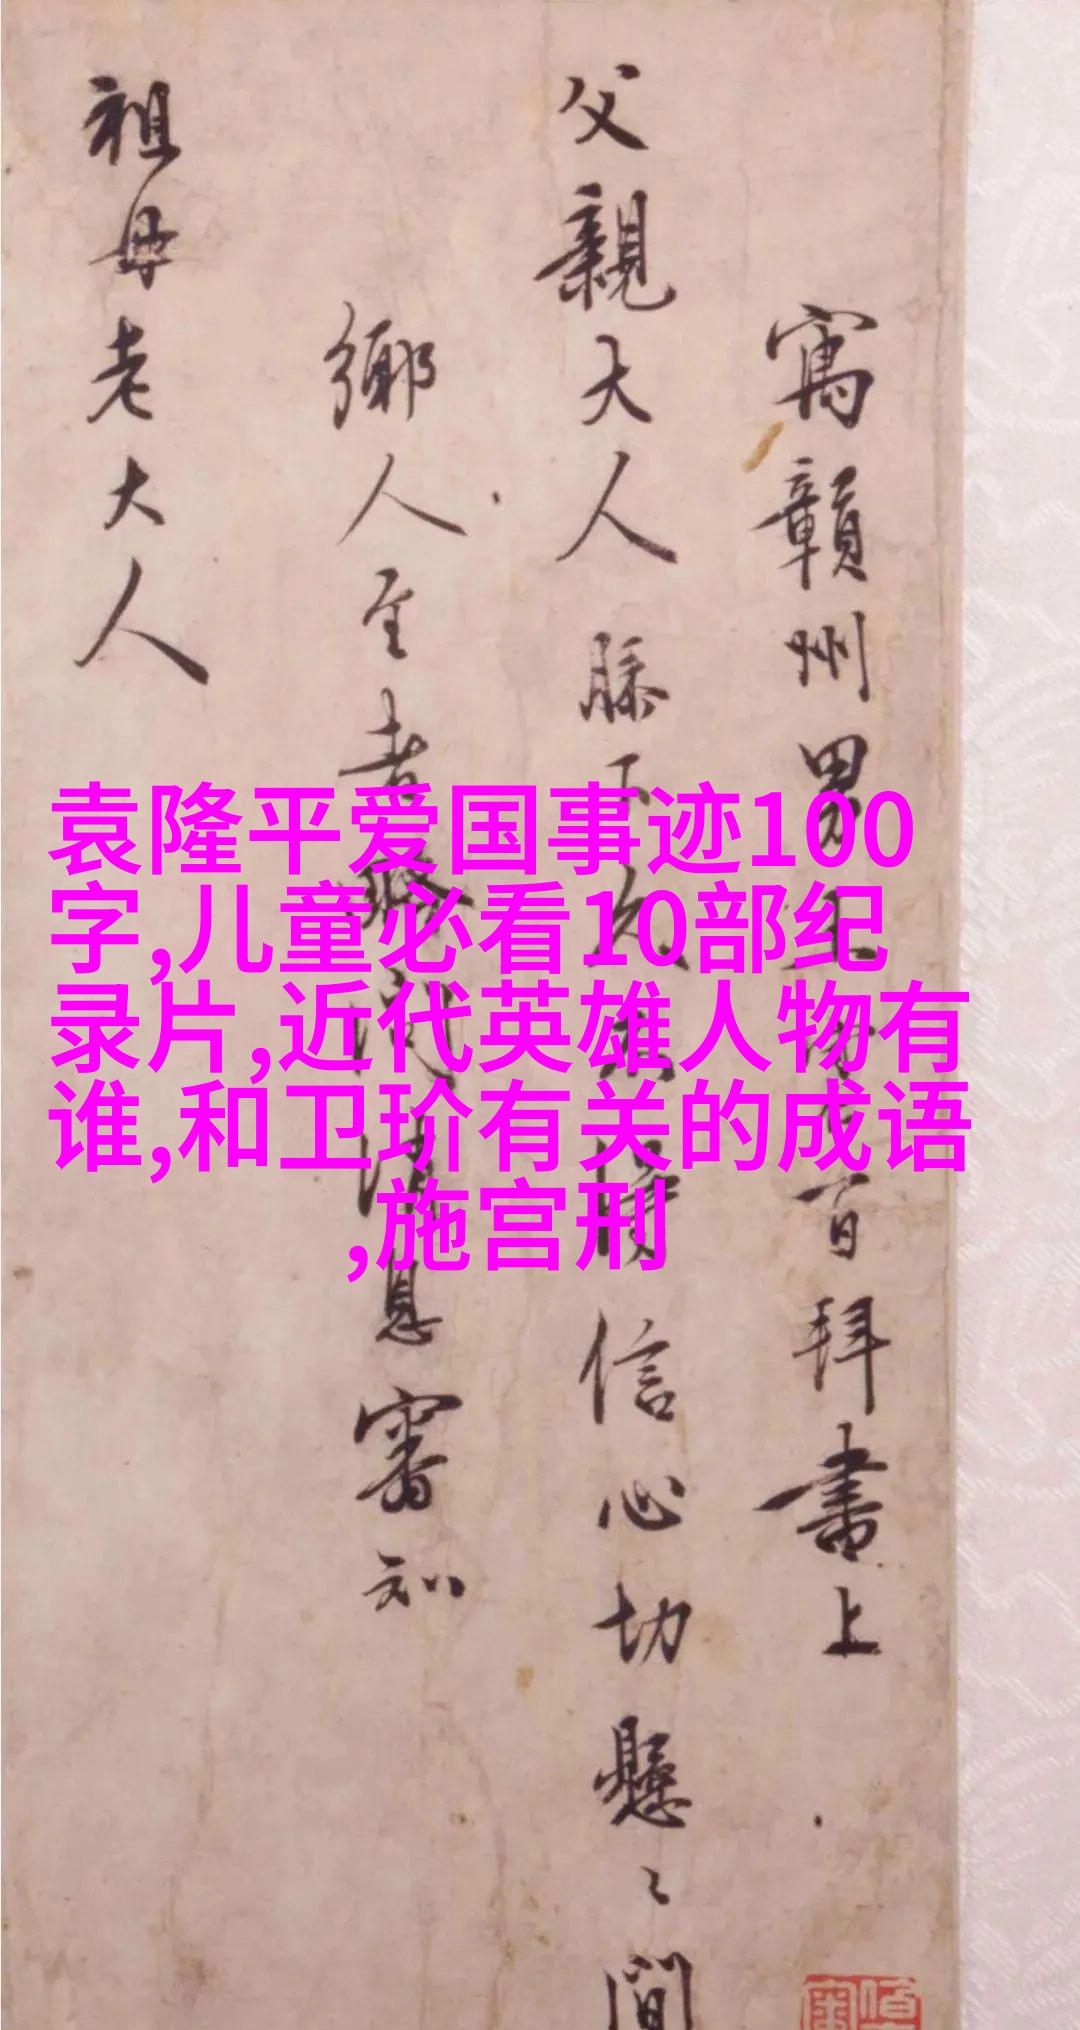 袁隆平爱国事迹100
字,儿童必看10部纪
录片,近代英雄人物有
谁,和卫玠有关的成语
,施宫刑
寓贛州男百拜書上
父親大人膝下久得信心切懸〻間
鄉人至者問消息審知
祖母老大人